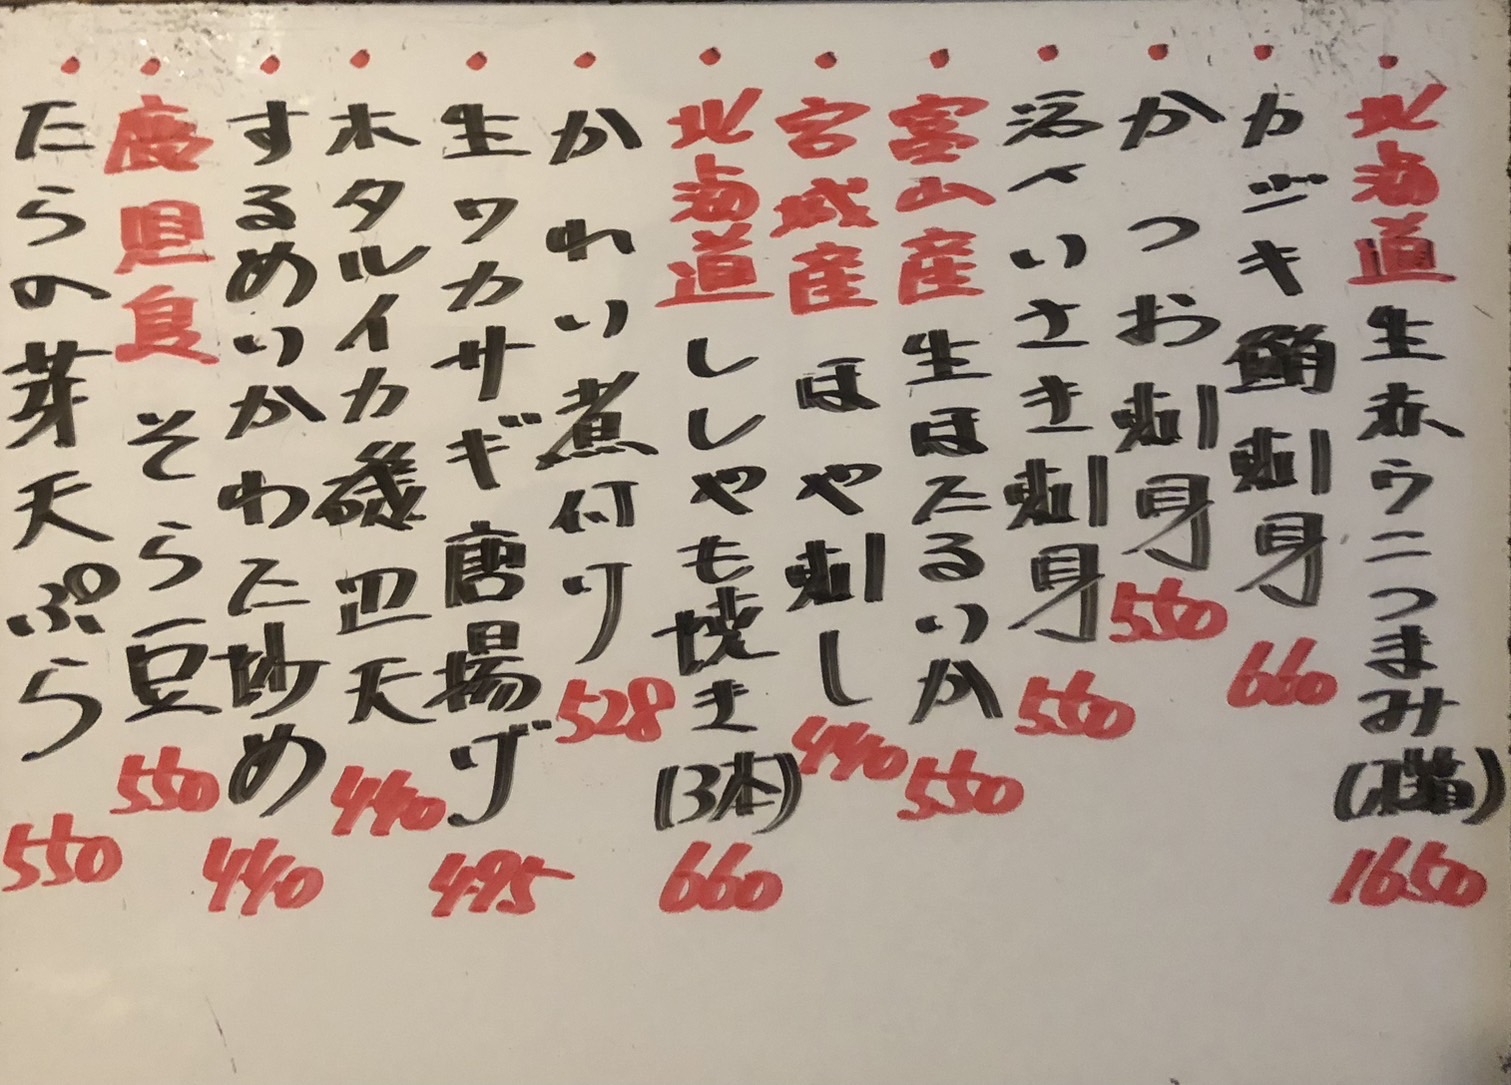 北海道 生赤ウニつまみ 1650
カジキ鮪刺身 660
かつお刺身 550
活〆いさき刺身 550
富山産 生ほたるいか 550
宮城産 ほや刺し 440
北海道 ししゃも焼き(3本) 660
かれい煮付け 528
生ワカサギ唐揚げ 495
ホタルイカ磯辺天 440
するめいかわた炒め 440
鹿児島 そら豆 550
たらの芽天ぷら 550